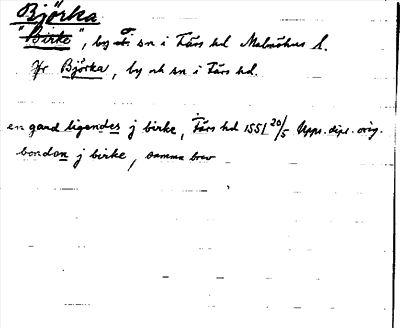 Björka
"Birke", by o sn i Färs hd Malmöhus l.
Jfr Björka, by och sn i Färs hd.
en gard ligendes j birke, Färs hd 1551 20/5 Upps. dipl. orig.
bonden j birke, samma brev